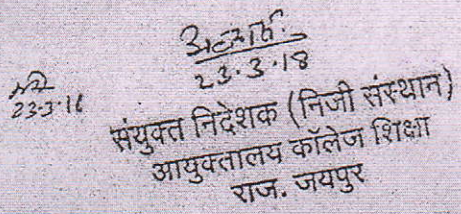 23.3.18
23.3.18
संयुक्त निदेशक (निजी संस्थान)
आयुक्तालय कॉलेज शिक्षा
राज. जयपुर